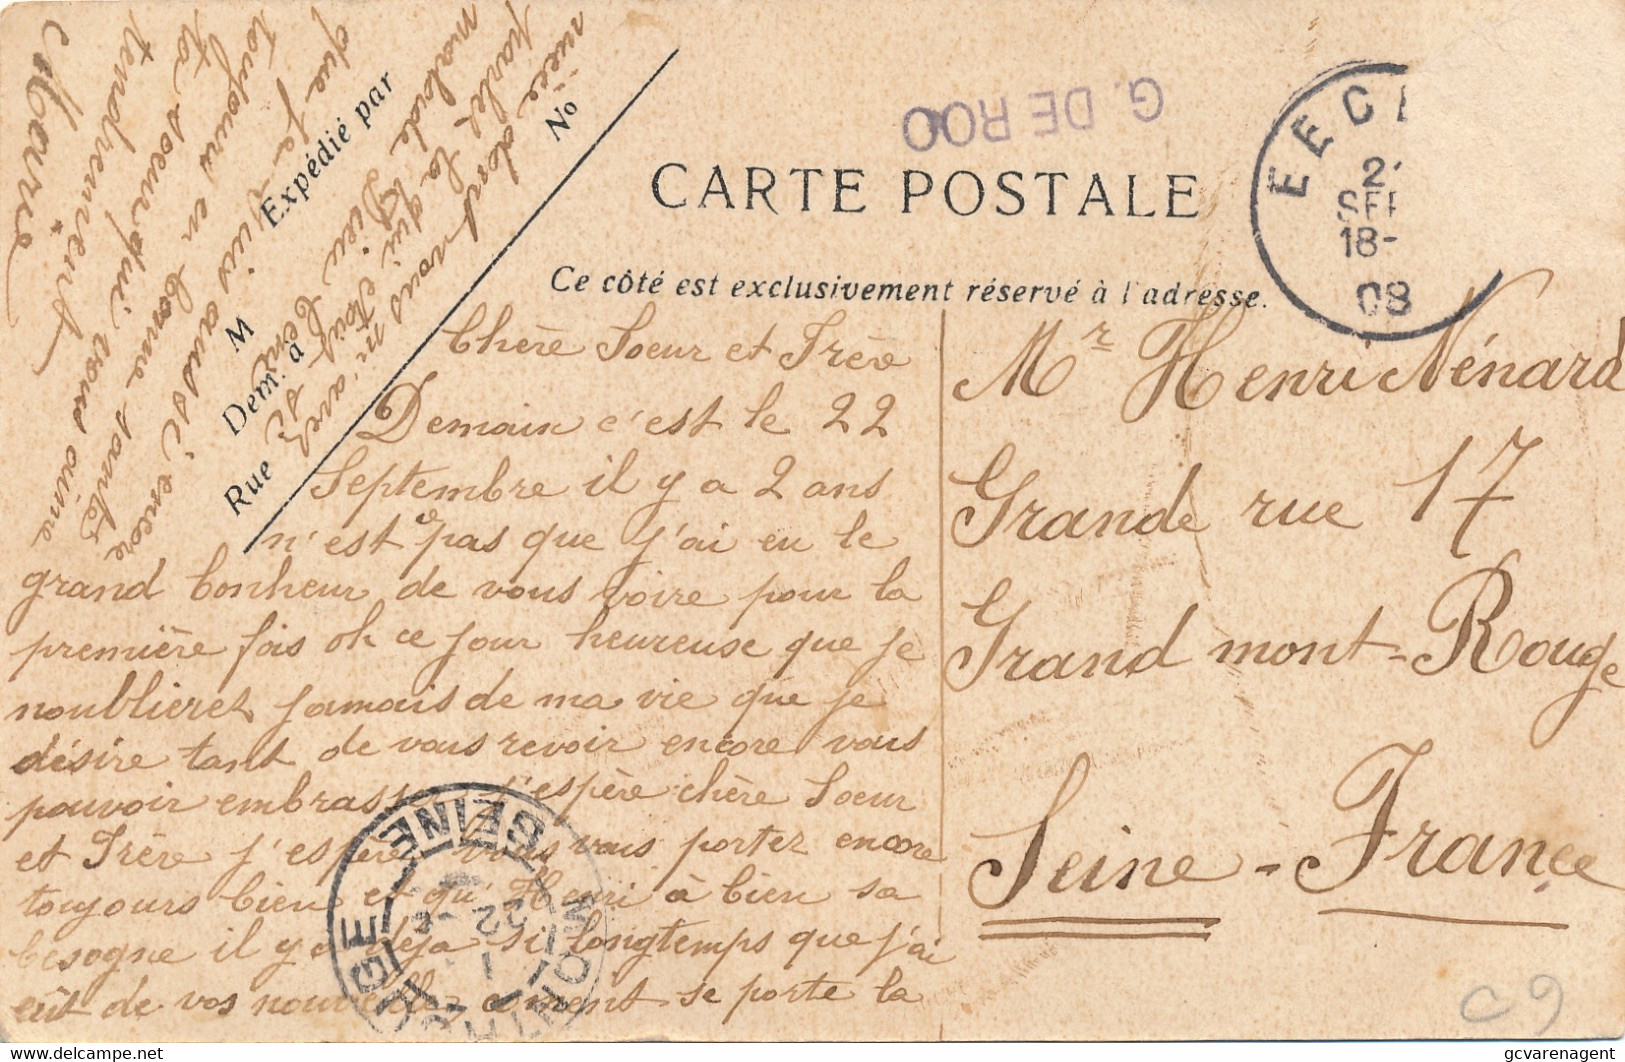 G. DE ROO
CARTE POSTALE
Ce côté est exclusivement réservé à l'adresse.
EECL
SEP
18-
08
Expédié par
M
Dem. à
Rue
No
Chère Soeur et Frère
Demain c'est le 22
Septembre il y a 2 ans
n'est pas que j'ai eu le
grand bonheur de vous voire pour la
première fois oh ce jour heureuse que je
noublierez jamais de ma vie que je
désire tant de vous revoir encore vous
pouvoir embrasser j'espère chère Soeur
et Frère j'espère vous vous portez encore
toujours bien et qu'Henri à bien sa
besogne il y a déja si longtemps que j'ai
eût de vos nouvelles coment se porte la
nièce dont vous m'avez
parlez la qui étoit si
malade Dieu
que je suis aussi encore
toujours en bonne santé
ta soeur qui vous aime
tendrement
Marie
Mr Henri Ménard
Grande rue 17
Grand mont-Rouge
Seine - France
MONTROUGE
SEINE
22
C9
https://www.delcampe.net
gcvarenagent